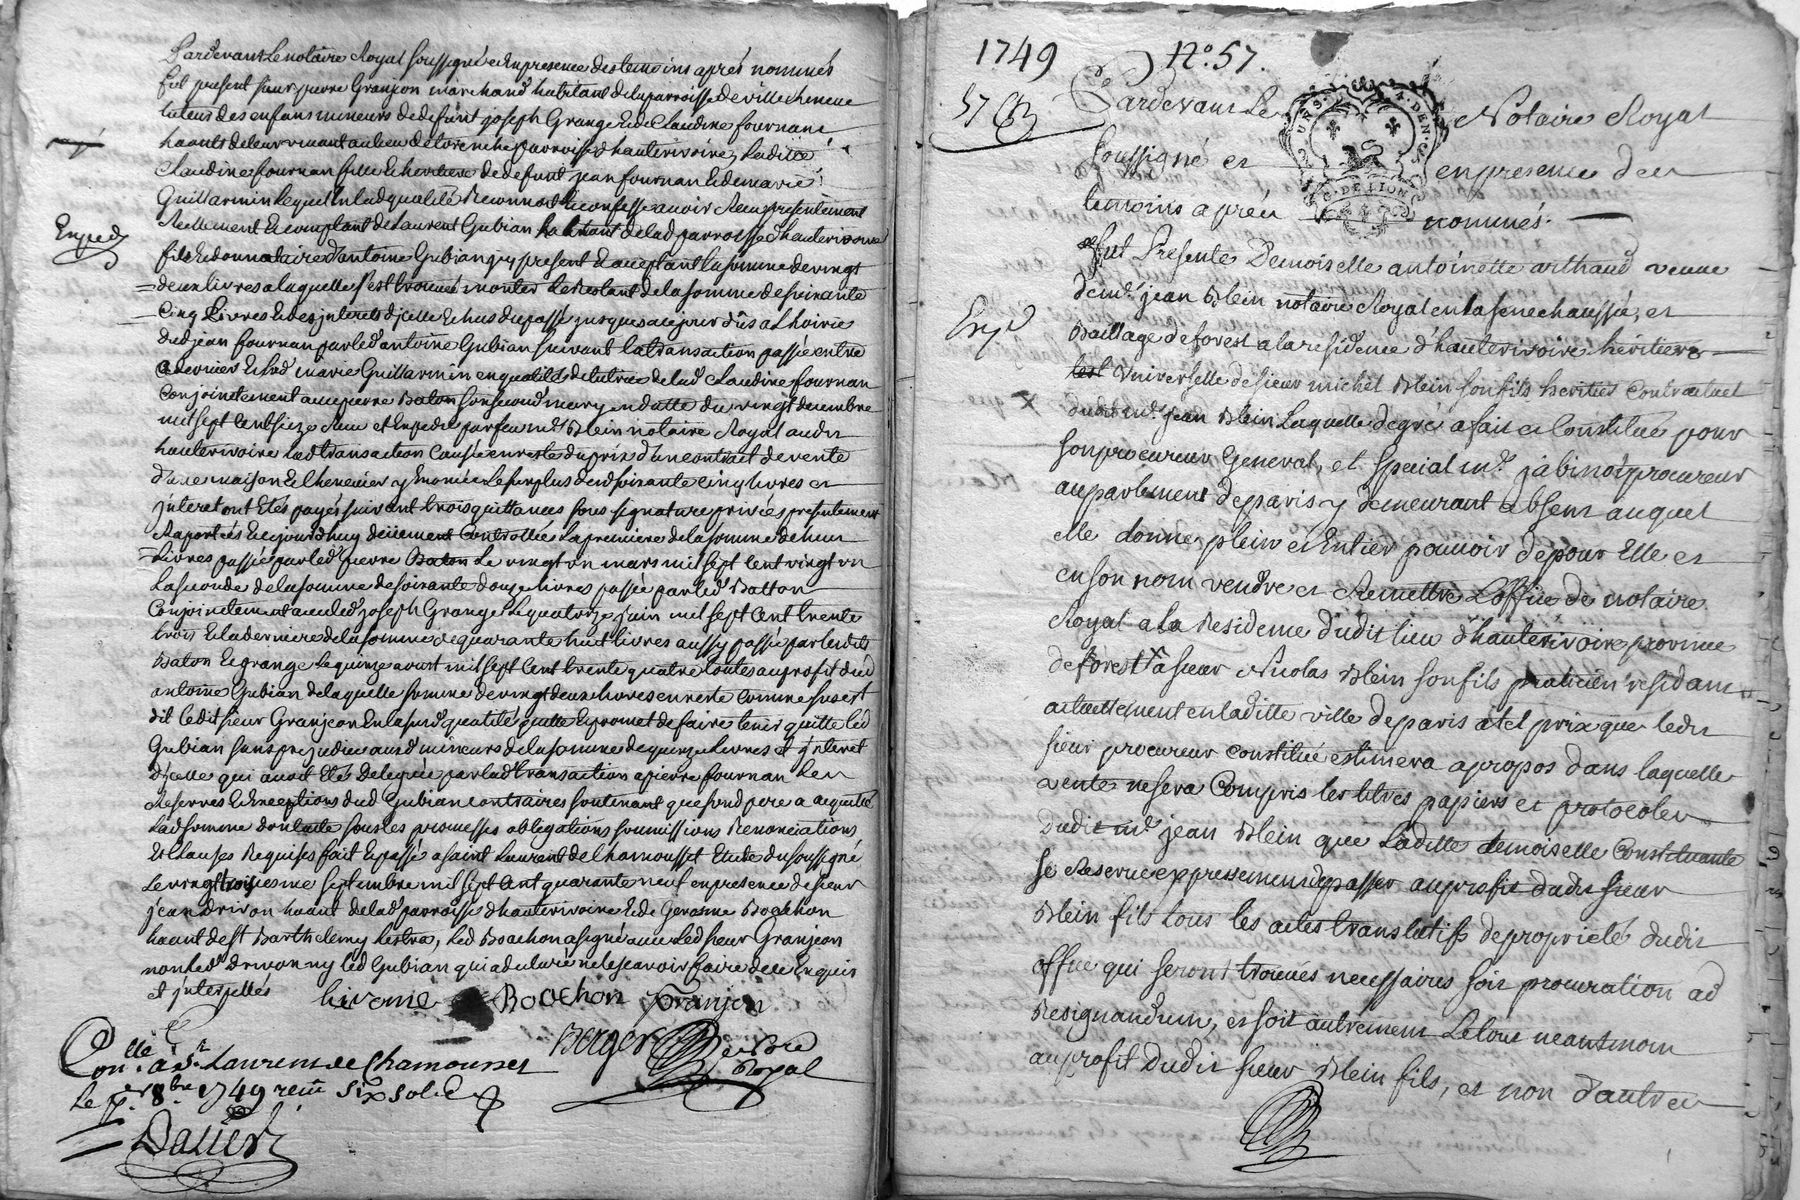 Pardevant Le notaire Royal soussigné et En presence des temoins après nommés
fut present sieur pierre Granjon marchand habitant de la parroisse de villecheneve
tuteur des enfans mineurs de defunt joseph Grange Et de Claudine fournand
haants de leur vivant au lieu de parroisse d'hauterivoire, Laditte
Claudine fournan fille Et heritiere de defunt jean fournan Et de marie
Guillarmin Lequel En lad qualité Reconnoit Et confesse avoir Reçu presentement
Reellement Et comptant de Laurent Gubian habitant de lad parroisse d'hauterivoire
Exped
fils Et donnataire d'antoine Gubian jcy present Et acceptant la somme de vingt
deux livres a laquelle s'est trouvé monter Le Restant de la somme de soixante
Cinq Livres Et des jnterets d'jcelle Echus du passé jusques a ce jour dûs a L'hoirie
dud jean fournan par led antoine Gubian suivant la transaction passée entre
ce dernier Et lad marie Guillarmin en qualité de tutrice de lad Claudine fournan
Conjointement avec pierre Baton son second mary en datte du vingt decembre
mil sept Cent seize Reçu et Expedié par feu me Blein notaire Royal audit
hauterivoire lad transaction Causée en reste du prix d'un contract de vente
d'une maison Et chenevier y Enoncée Le surplus desd soixante cinq livres et
jnteret ont Etés payés suivant trois quittances sous signature privées presentement
Raportées Et ce jourd'huy deüement Controllées La premiere de la somme de huit
Livres passée par led pierre Baton Le vingt un mars mil sept Cent vingt un
La seconde de la somme de soixante douze livres passée par led Batton
Conjointement avec led joseph Grange Le quatorze juin mil sept Cent trente
trois Et la derniere de la somme de quarante huit livres aussy passée par lesdits
Baton Et grange Le quinze aoust mil sept Cent trente quatre toutes au profit dud
antoine Gubian de laquelle somme de vingt deux livres en reste comme sus est
dit ledit sieur Granjeon En lasusd qualité quitte Et promet de faire tenir quitte led
Gubian sans prejudice ausd mineurs de la somme de quinze Livres Et jnteret
d'jcelle qui avoit Eté Deleguée par lad transaction a pierre fournan Les
Reserves Et Exceptions dud Gubian contraires soutenant que son d pere a acquitté
Lad somme dont acte sous les promesses obligations soumissions Renonciations
Et Clauses Requises fait Et passé a saint Laurent de Chamousset Etude du soussigné
Le vingt troisiesme septembre mil sept Cent quarante neuf en presence de sieur
jean drivon haant de lad parroisse d'hauterivoire Et de Gerosme Boachon
haant de St Barthelemy Lestra, Led Boachon a signé avec Led sieur Granjeon
non led drivon ny led Gubian qui a declaré ne le sçavoir faire de ce Enquis
et jnterpellés
Boachon Granjon
Berger notre Royal
Conlle à St Laurent de Chamousset
Le 8bre 1749 reçu six sols
Dalier
1749 No. 57.
57
Pardevant Le Notaire Royal
Soussigné et en presence des
temoins après nommés.
fut Presente Demoiselle antoinette arthaud veuve
de me jean Blein notaire Royal en la senechaussée, et
Exp
Baillage de forest a la residence d'hauterivoire héritiere
universelle de sieur michel Blein son fils heritier Contractuel
dudit me jean Blein Laquelle de gré a fait et Constitué pour
son procureur General, et special me jabinot procureur
au parlement de paris y demeurant absent auquel
elle donne plein et Entier pouvoir de pour Elle et
en son nom vendre et Remettre L'office de notaire
Royal a La Residence dudit lieu d'hauterivoire province
de forest a sieur Nicolas Blein son fils praticien residant
actuellement en laditte ville de paris à tel prix que ledit
sieur procureur constitué estimera apropos dans laquelle
vente ne sera Compris les titres papiers et protocoles
dudit me jean Blein que Laditte demoiselle Constituante
se Reserve expressement de passer au profit dudit sieur
Blein fils tous les actes translatifs de propriété dudit
office qui seront trouvés necessaires soit procuration ad
Resignandum, et soit autrement Le tout neantmoin
au profit dudit sieur Blein fils, et non d'autres